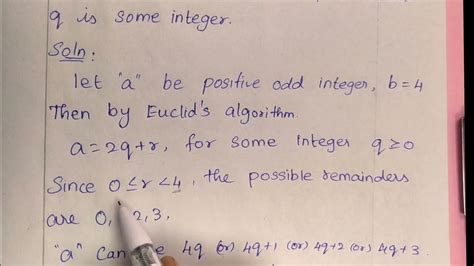 q is some integer.
Soln:
let "a" be positive odd integer, b=4
Then by Euclid's algorithm.
a=2q+r, for some Integer q≥0
Since 0≤r<4, the possible remainders
are 0, 2,3,
"a" can 4q (or) 4q+1 (or) 4q+2 (or) 4q+3.